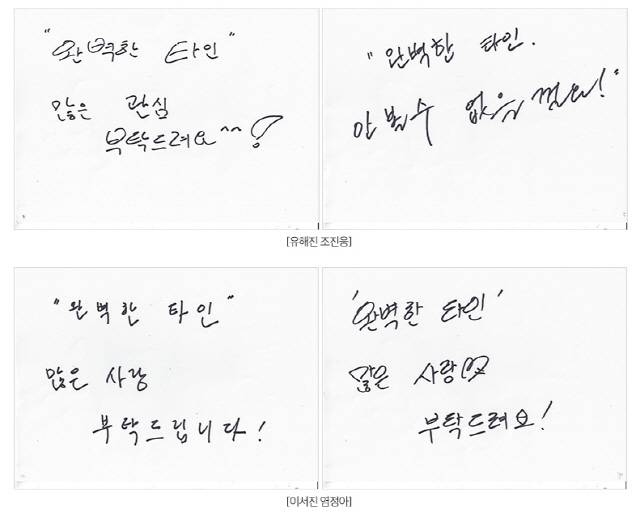 "완벽한 타인"
많은 관심
부탁드려요^^!
"완벽한 타인.
안 볼 수 없을 껄요!"
[유해진 조진웅]
"완벽한 타인"
많은 사랑
부탁드립니다!
'완벽한 타인'
많은 사랑
부탁드려요!
[이서진 염정아]